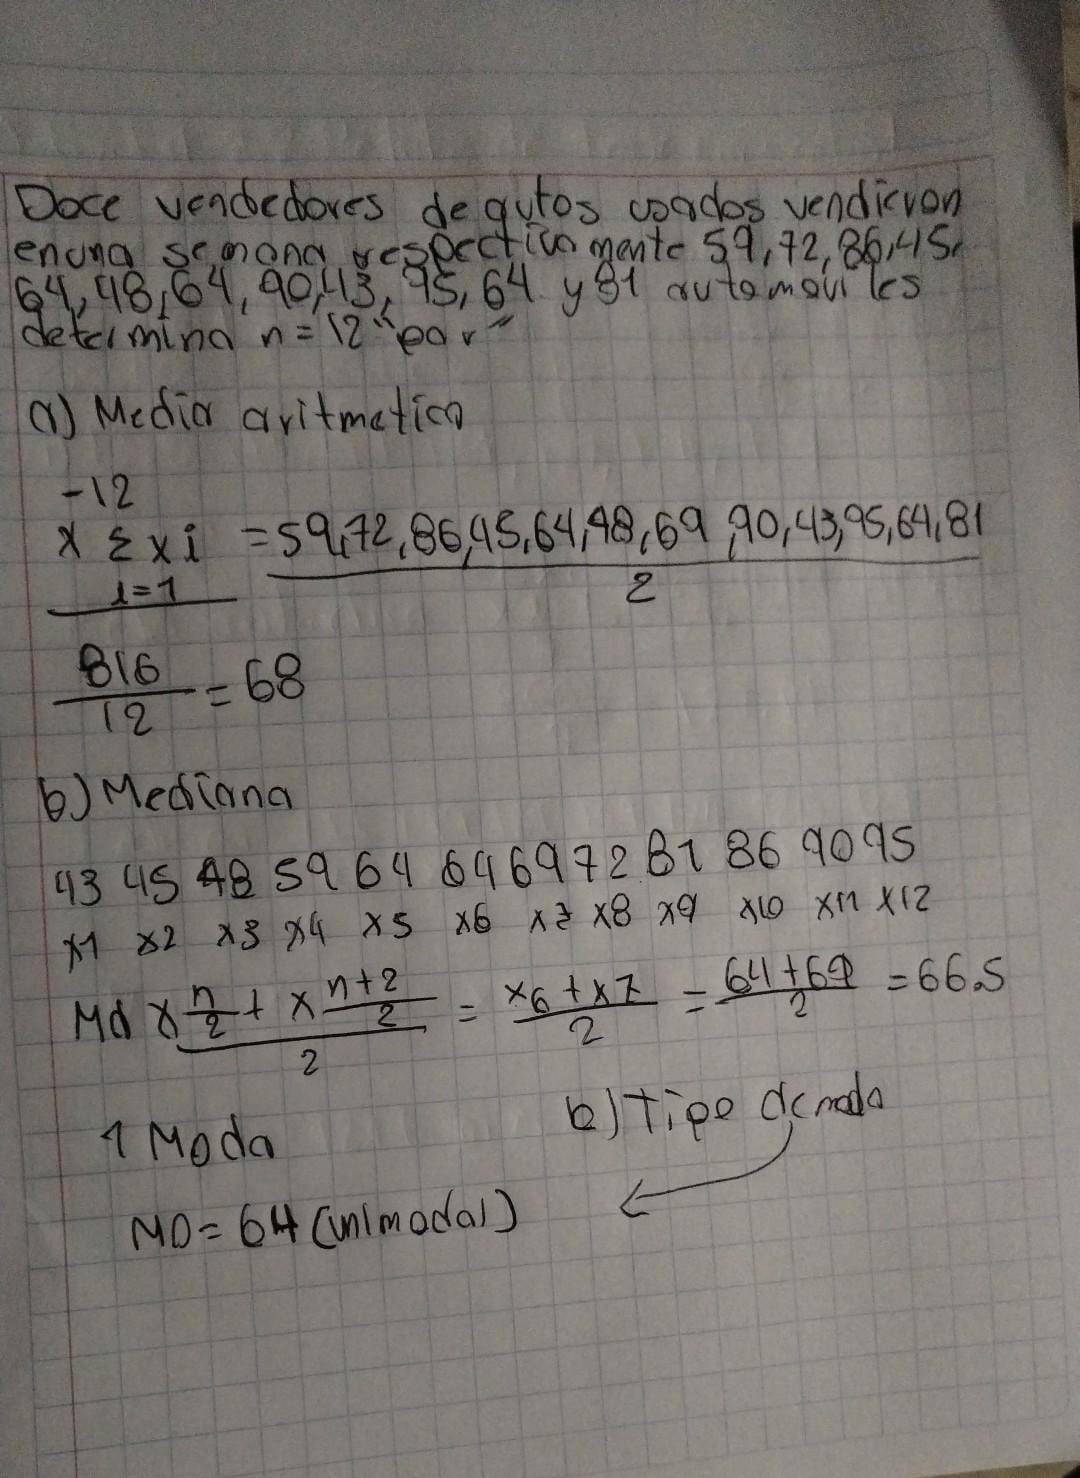 Doce vendedores de autos usados vendieron
en una semana respectivamente 59,72,86,45,
64,48,64,90,43,95,64 y 81 automoviles
determina n=12 "par"
a) Media aritmetica
-12
x Σ xi = 59,72,86,45,64,48,69,90,43,95,64,81
i=1 2
816
12 = 68
b) Mediana
43 45 48 59 64 64 69 72 81 86 90 95
x1 x2 x3 x4 x5 x6 x7 x8 x9 x10 x11 x12
Md x n/2 + x n+2/2 = x6 + x7 / 2 = 64+69 / 2 = 66.5
2
1 Moda b) Tipo de moda
MO = 64 (unimodal)